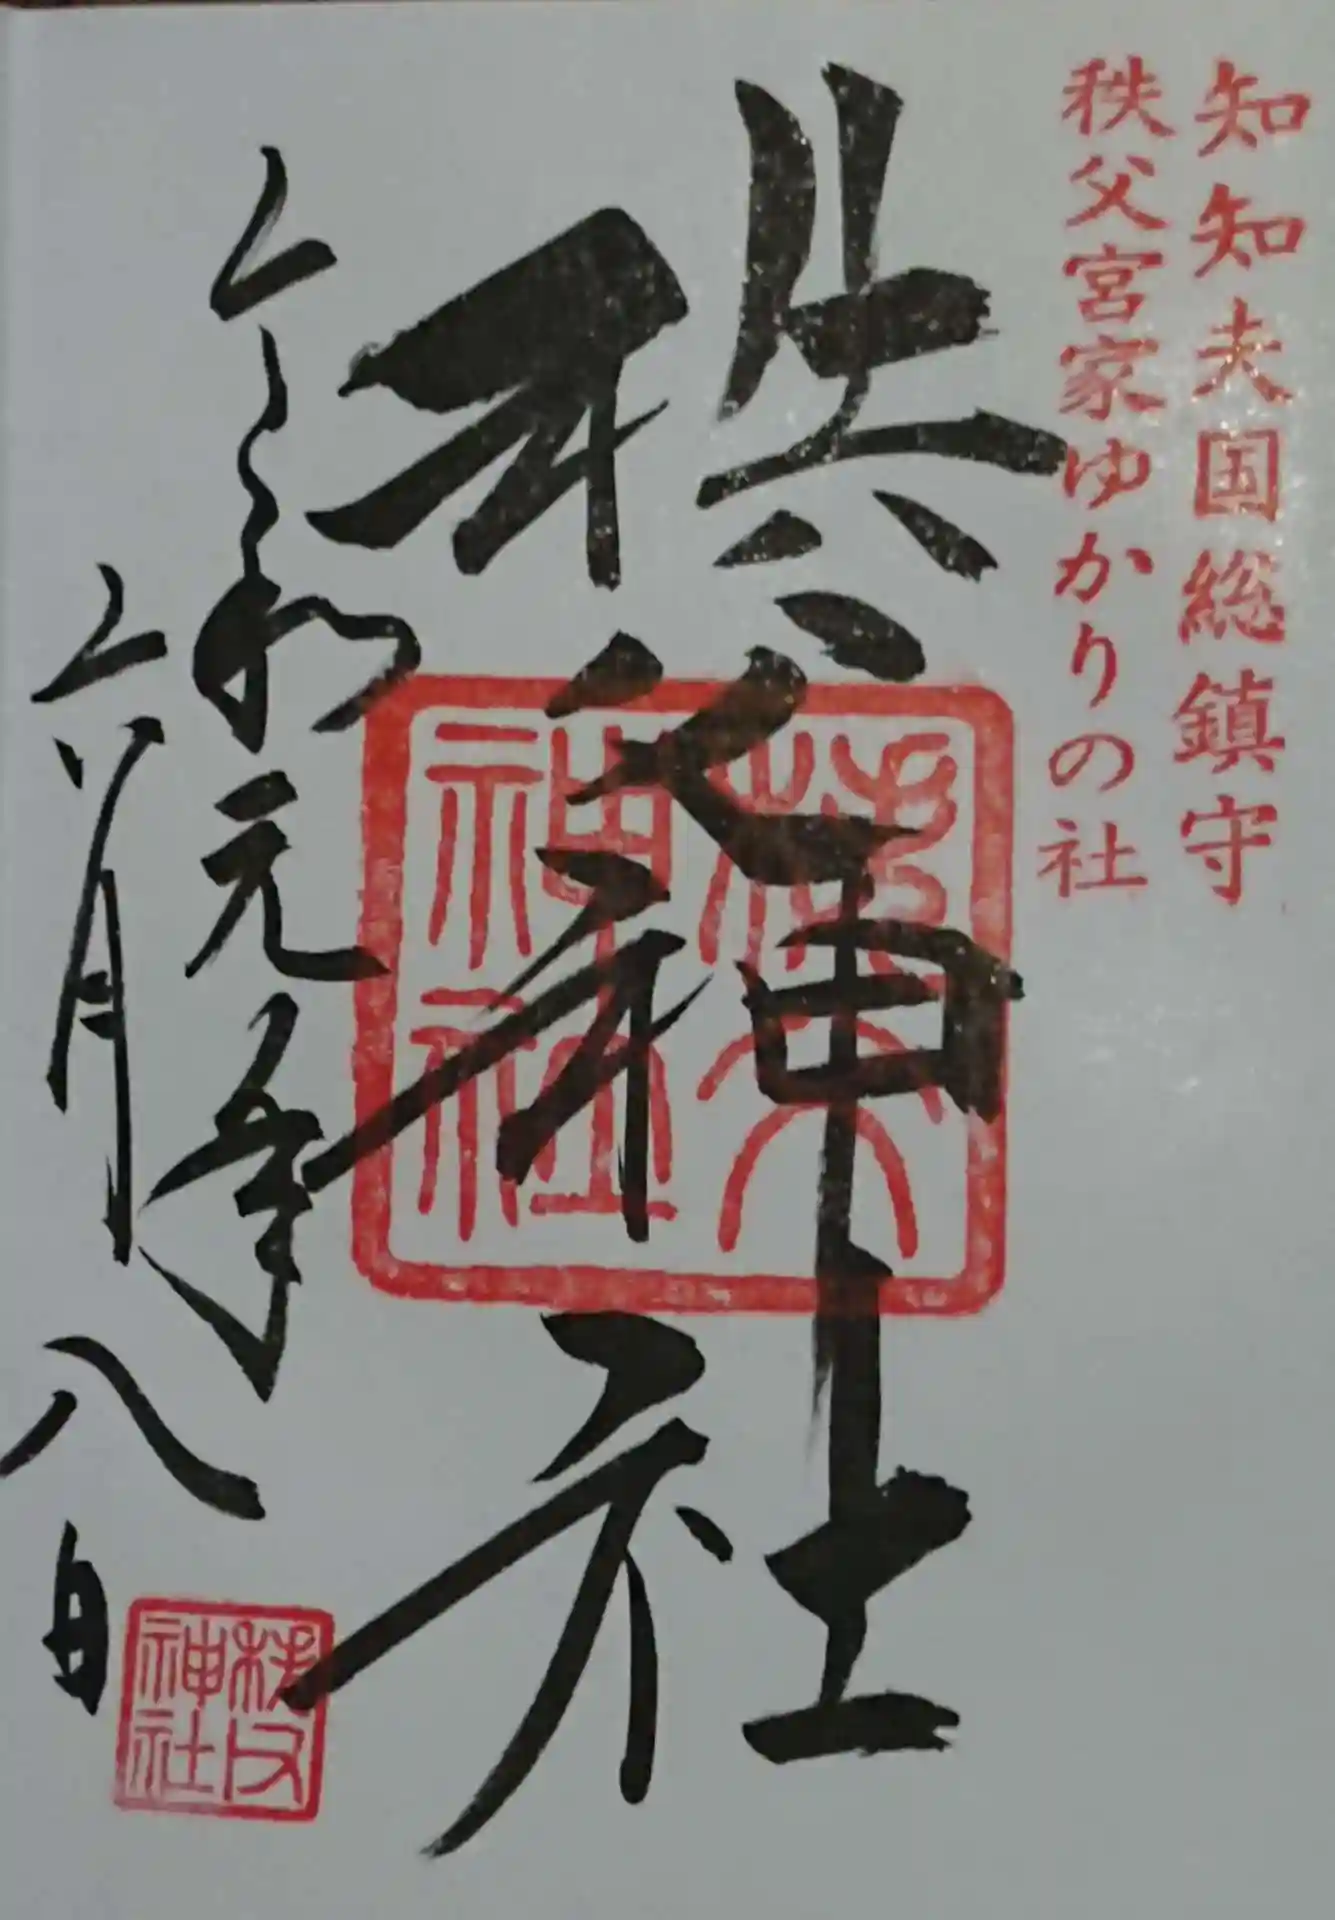 知知夫国総鎮守
秩父宮家ゆかりの社
秩父神社
令和元年
六月八日
秩父神社
秩父神社